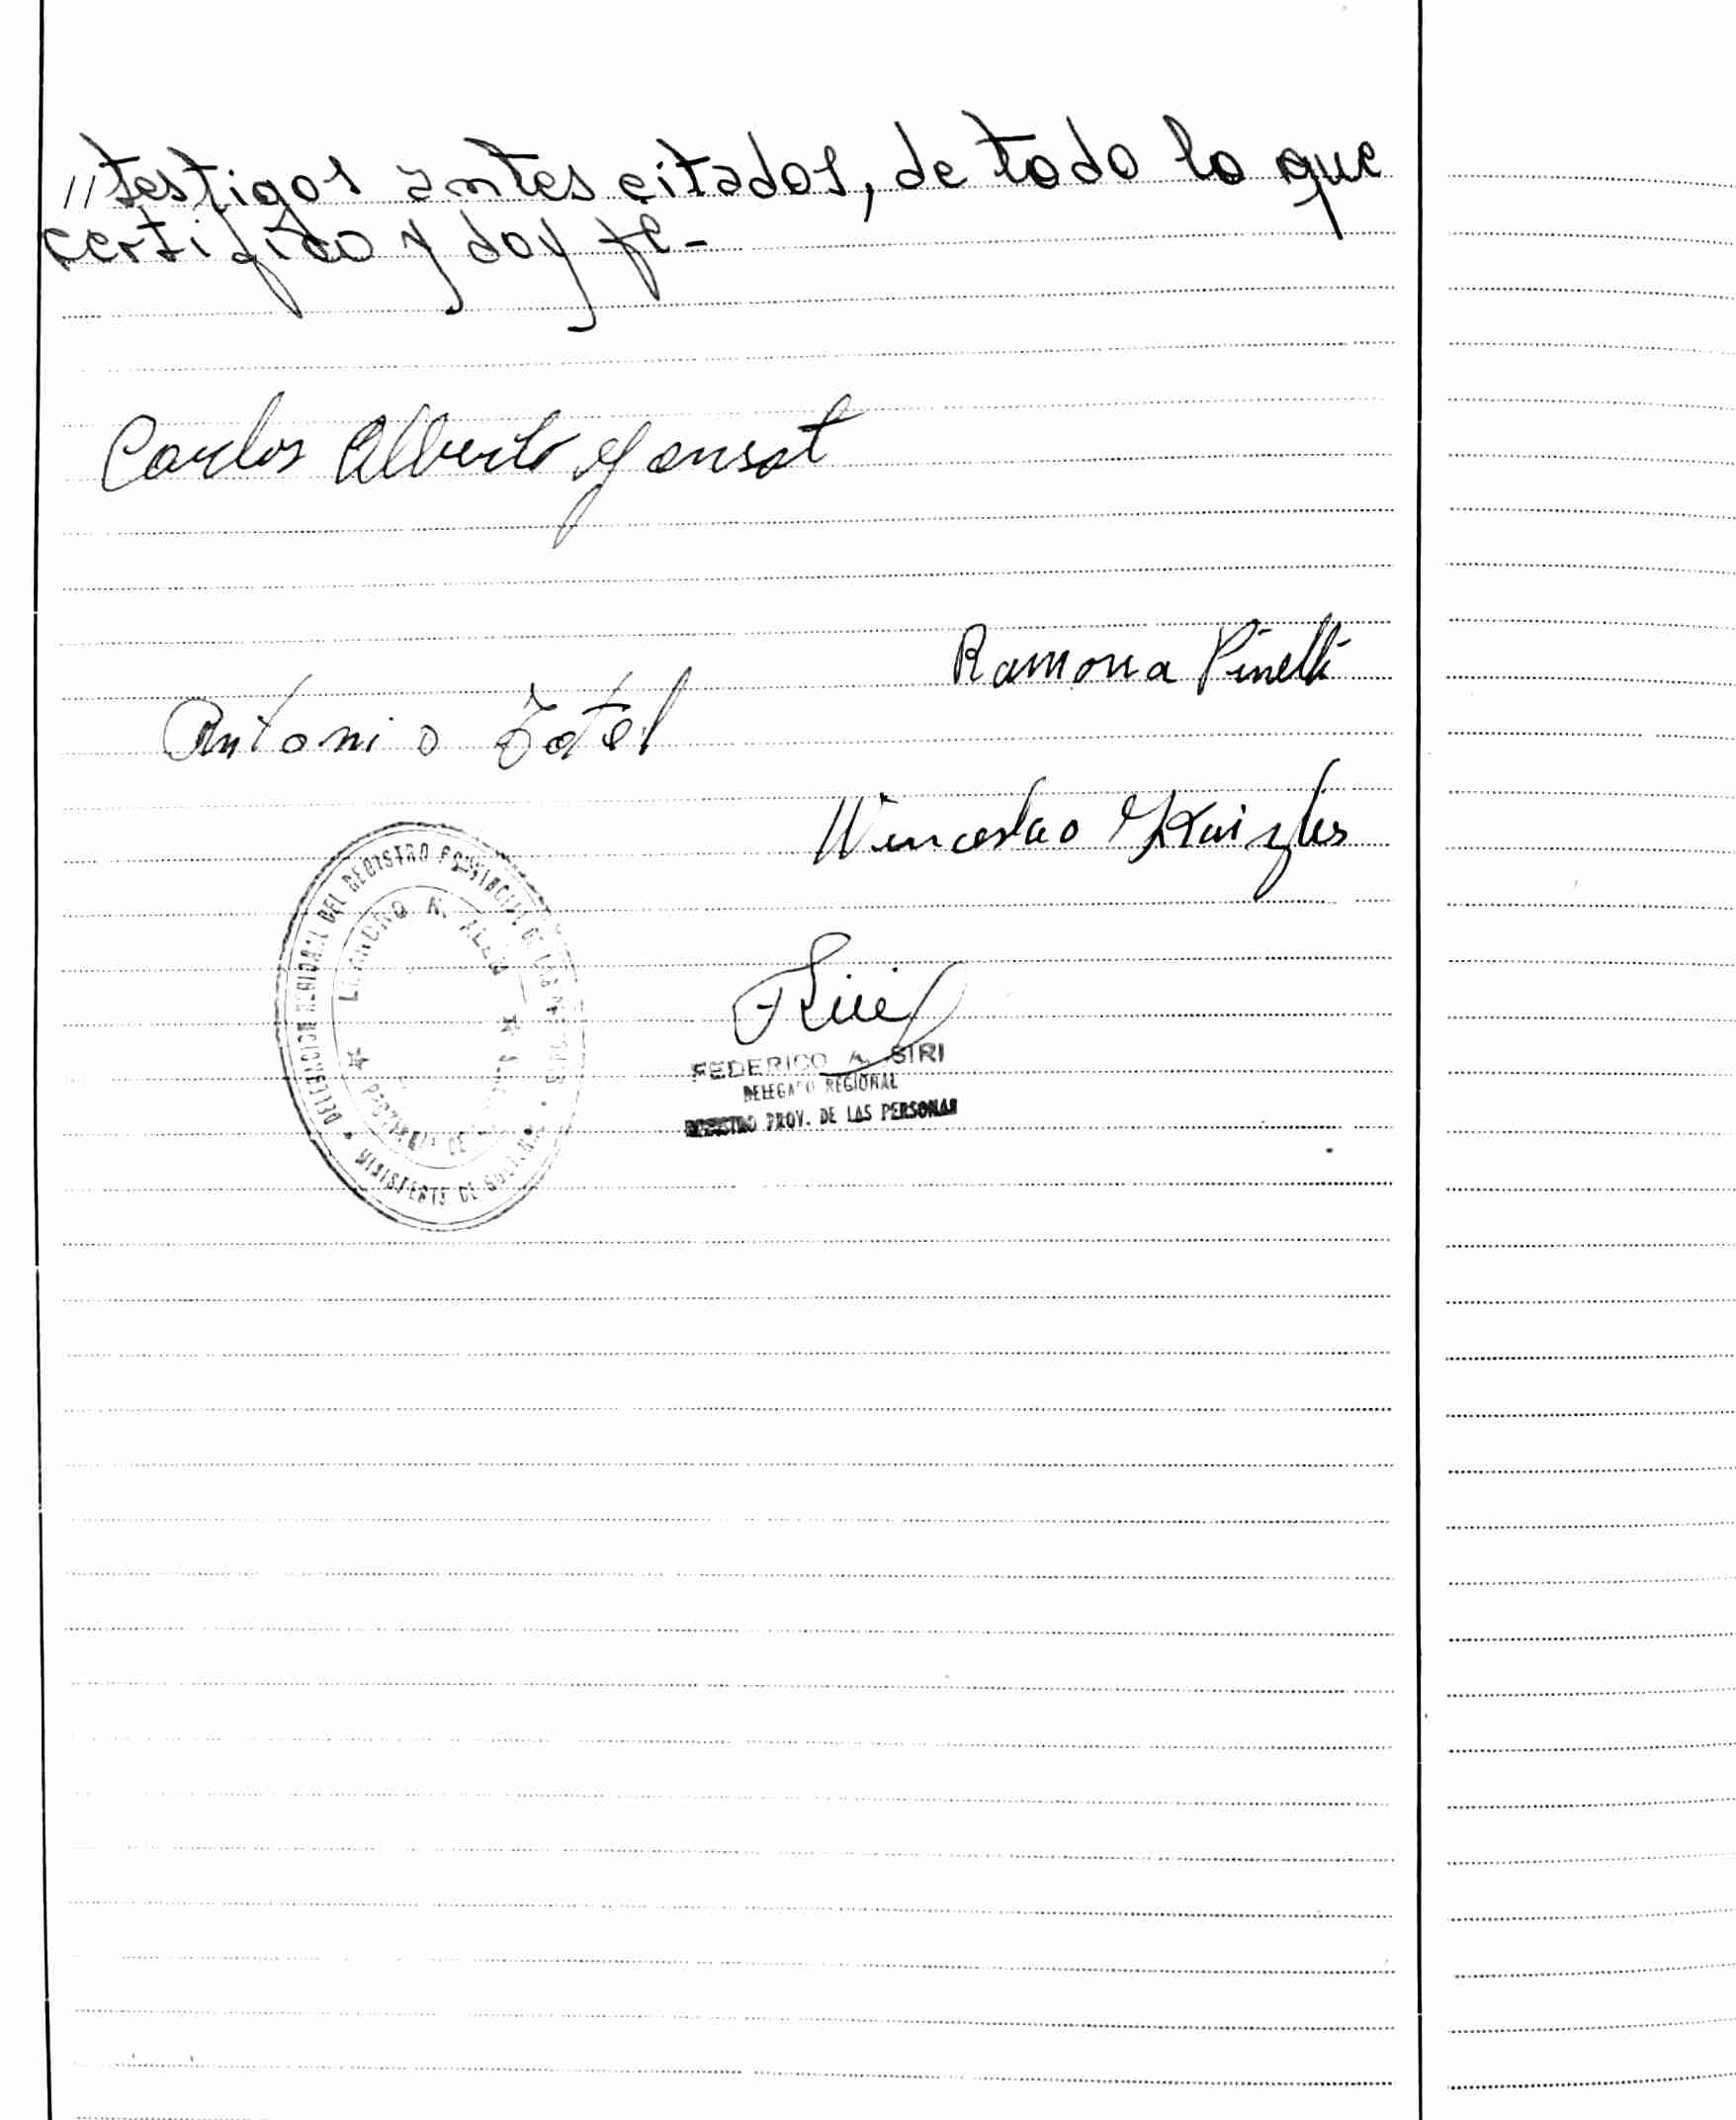 // testigos antes citados, de todo lo que
certifico y doy fe-
Carlos Alberto
Ramona Pinelli
Antonio
Winceslao
DELEGACION REGIONAL DEL REGISTRO PROVINCIAL DE LAS PERSONAS
LEANDRO N. ALEM
PROVINCIA DE
MINISTERIO DE GOBIERNO
FEDERICO A. SIRI
DELEGADO REGIONAL
REGISTRO PROV. DE LAS PERSONAS